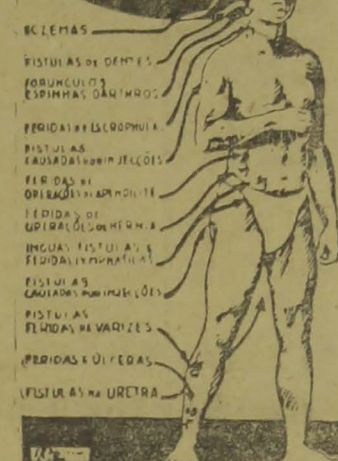 ECZEMAS
FISTULAS DE DENTES
FORUNCULOS
ESPINHAS DARTHROS
FERIDAS DE ESCROPHULA
FISTULAS
CAUSADAS POR INJECÇÕES
FERIDAS DE
OPERAÇÕES DE APENDICITE
FERIDAS DE
OPERAÇÕES DE HERNIA
INGUAS FISTULAS E
FERIDAS LYMPHATICAS
FISTULAS
CAUSADAS POR INJECÇÕES
FISTULAS
FERIDAS DE VARIZES
FERIDAS E ÚLCERAS
FISTULAS NA URETRA